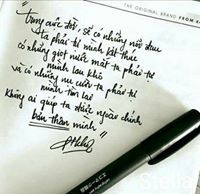 THE ORIGINAL BRAND FROM
"Trong cuộc đời, sẽ có những nỗi đau
ta phải tự mình kết thúc
có những giọt nước mắt ta phải tự
mình lau khô
và có những nụ cười ta phải tự
mình tìm lại
Không ai giúp ta được ngoài chính
bản thân mình"
Stella